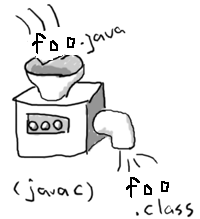 foo.java
(javac)
foo
.class